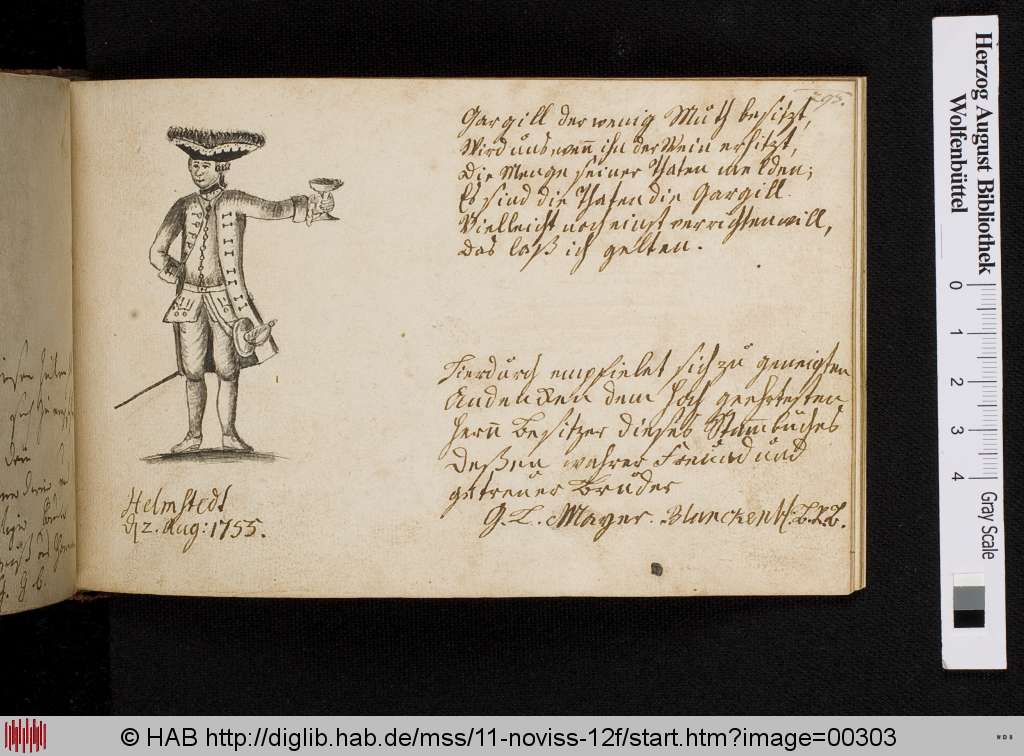 295.
Gargill der wenig Muth besitzt,
Wird uns wenn ihn der Wein erhitzt,
Die Menge seiner Thaten melden;
Es sind die Thaten die Gargill
Vielleicht noch einst verrichten will,
Das laß ich gelten.
Hierdurch empfielet sich zu geneigten
Andencken dem Hoch geehrtesten
Herrn Besitzer dieses Stammbuches
Deßen wahrer Freund und
getreuer Bruder
G. L. Mayer. Blanckenb:
Helmstedt
d 2. Aug: 1755.
Herzog August Bibliothek
Wolfenbüttel
0
1
2
3
4
Gray Scale
© HAB http://diglib.hab.de/mss/11-noviss-12f/start.htm?image=00303